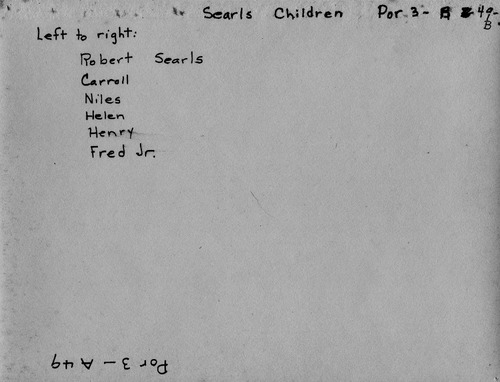 Searls Children Por 3- 49-
B
Left to right:
Robert Searls
Carroll
Niles
Helen
Henry
Fred Jr.
Por 3 - A 49